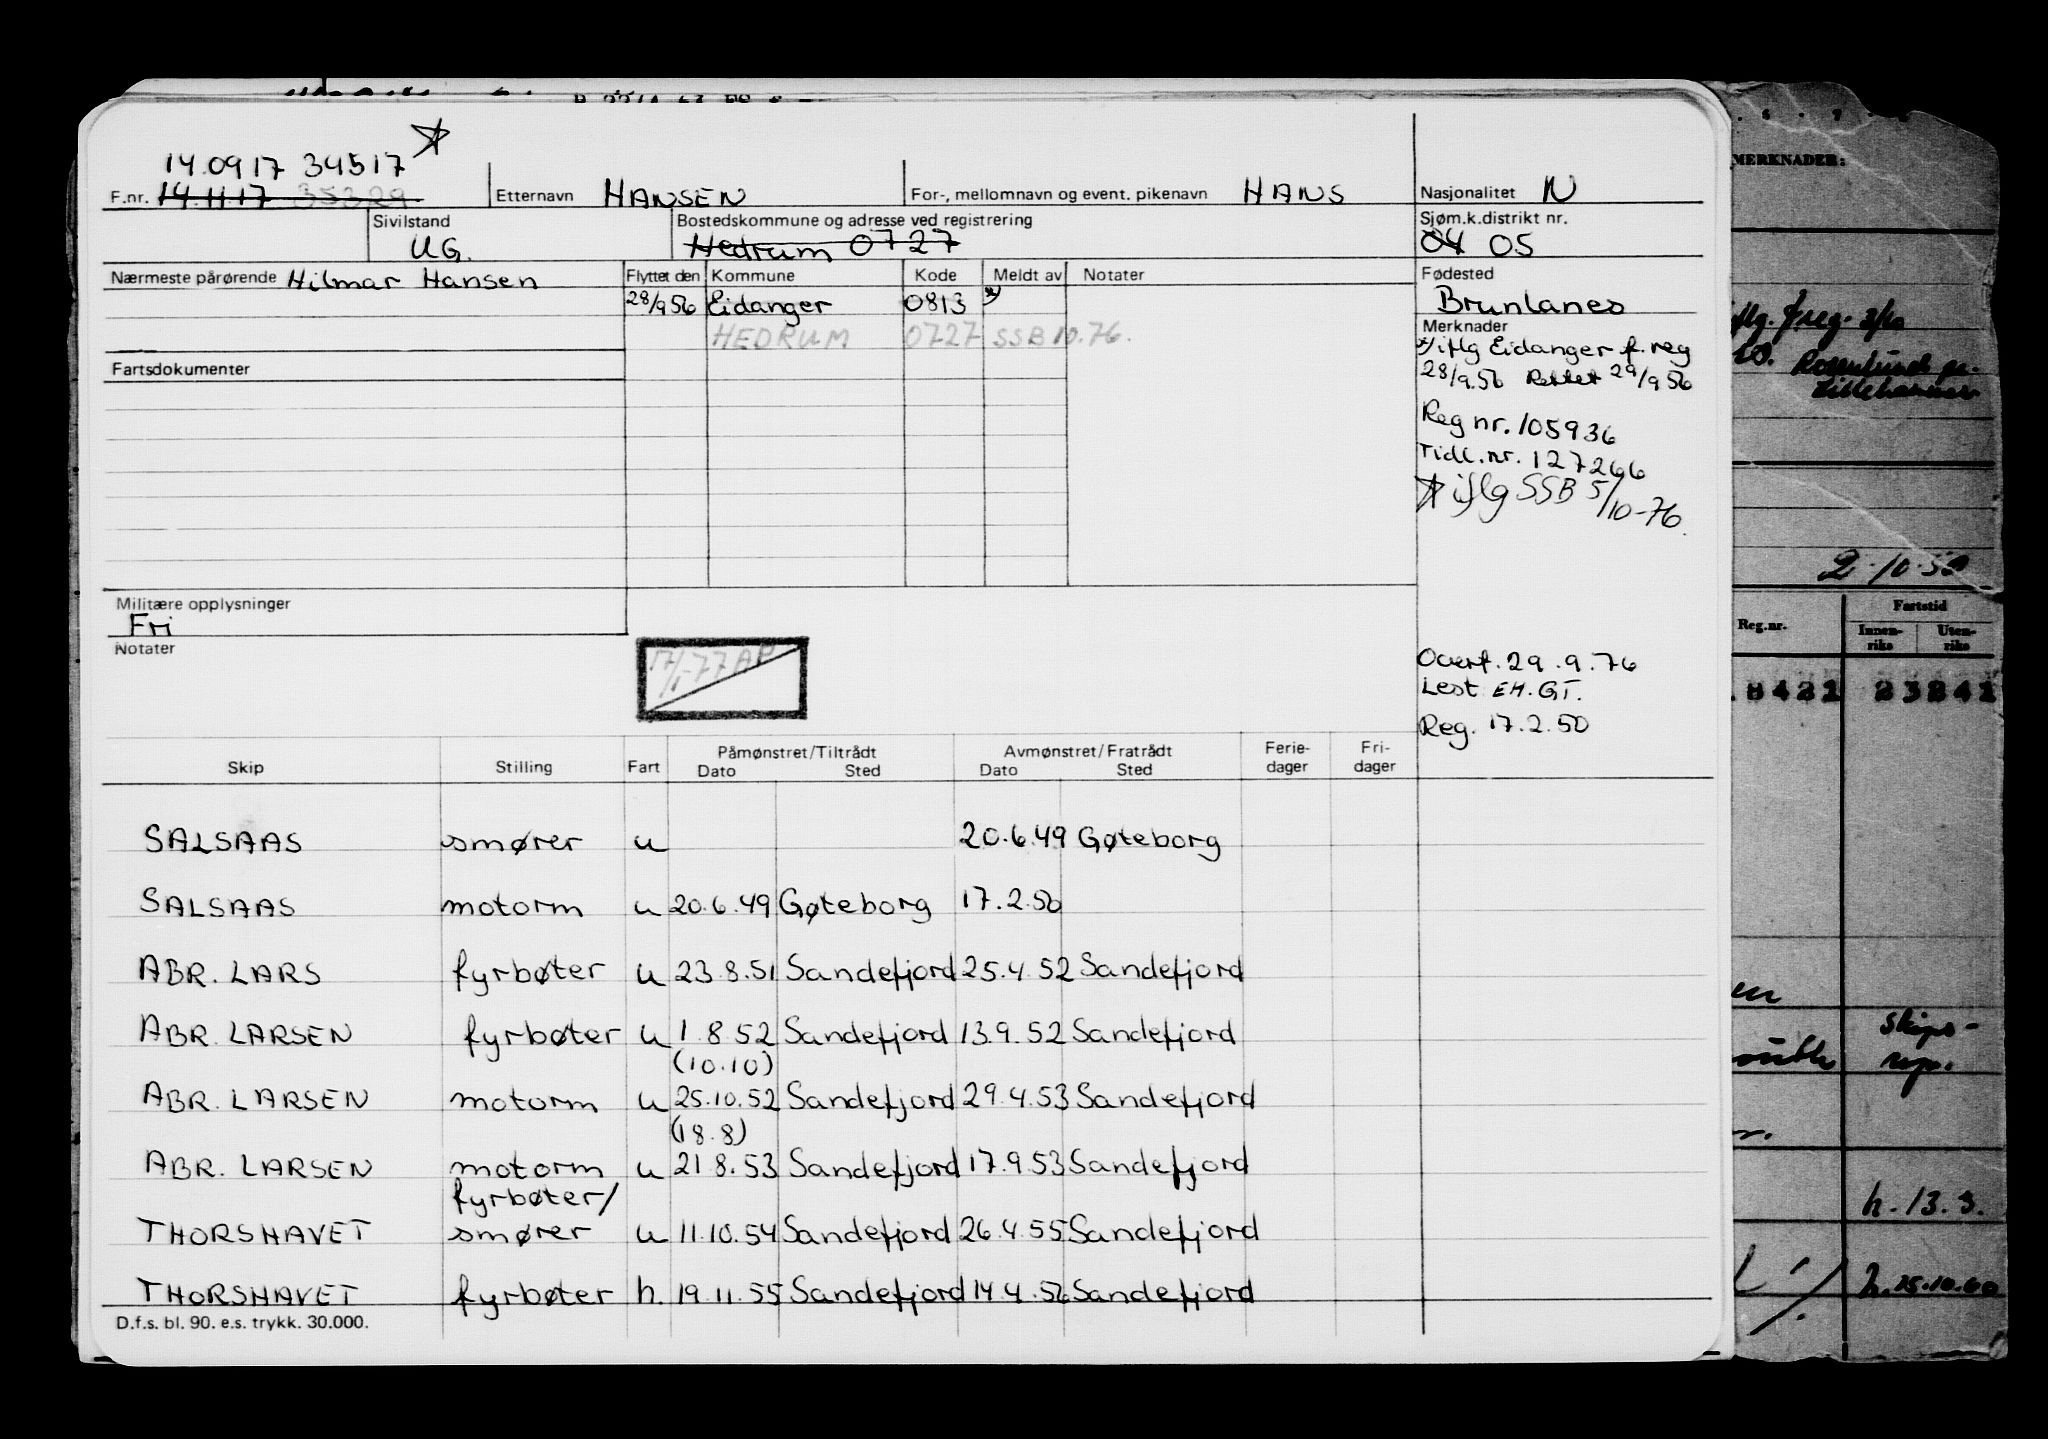 14.0917 34517
F.nr. 14.1117 35329 Etternavn HANSEN For-, mellomnavn og event. pikenavn HANS Nasjonalitet N
Sivilstand UG. Bostedskommune og adresse ved registrering Hedrum 0727 Sjøm.k.distrikt nr. 04 05
Nærmeste pårørende Hilmar Hansen Flyttet den Kommune Kode Meldt av Notater Fødested
28/9 56 Eidanger 0813 x) Brunlanes
HEDRUM 0727 SSB 10.76. Merknader
x) iflg Eidanger f. reg
Fartsdokumenter
28/9.56 Rettet 29/9 56
Reg nr. 105936
Tidl.nr. 127266
iflg SSB 5/10-76.
Militære opplysninger
Fri
Notater
17/1-77 AP
Overf. 29.9.76
Lest EH. GT.
Reg. 17.2.50
Skip Stilling Fart Påmønstret/Tiltrådt Dato Sted Avmønstret/Fratrådt Dato Sted Ferie-dager Fri-dager
SALSAAS smører u 20.6.49 Gøteborg
SALSAAS motorm u 20.6.49 Gøteborg 17.2.50
ABR. LARS fyrbøter u 23.8.51 Sandefjord 25.4.52 Sandefjord
ABR. LARSEN fyrbøter u 1.8.52 Sandefjord 13.9.52 Sandefjord
(10.10)
ABR. LARSEN motorm u 25.10.52 Sandefjord 29.4.53 Sandefjord
(18.8)
ABR. LARSEN motorm u 21.8.53 Sandefjord 17.9.53 Sandefjord
fyrbøter/
THORSHAVET smører u 11.10.54 Sandefjord 26.4.55 Sandefjord
THORSHAVET fyrbøter h. 19.11.55 Sandefjord 14.4.56 Sandefjord
D.f.s. bl. 90. e.s. trykk. 30.000.
MERKNADER:
reg. 3/10
2.10.5
Fartstid
Reg.nr. Innen-riks Uten-riks
8421 23241
Skips-
rep.
h. 13.3.
h. 15.10.60